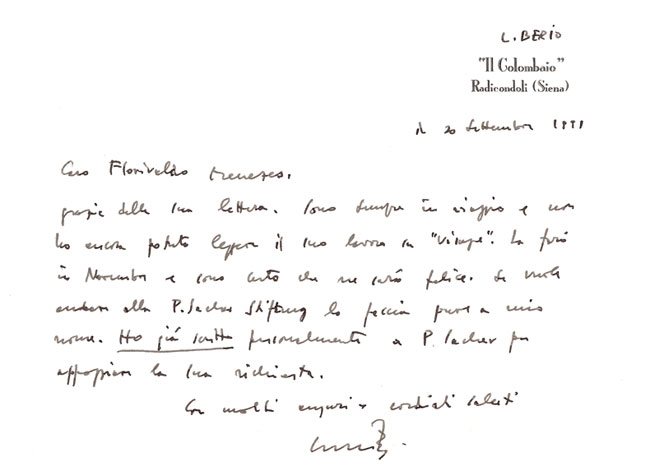 L. BERIO
"Il Colombaio"
Radicondoli (Siena)
il 20 Settembre 1991
Caro Florivaldo Menezes,
grazie della sua lettera. Sono sempre in viaggio e non
ho ancora potuto leggere il suo lavoro su "Visage". Lo farò
in Novembre e sono certo che ne sarò felice. Se vuole
andare alla P. Sacher Stiftung lo faccia pure a mio
nome. Ho già scritto personalmente a P. Sacher per
appoggiare la sua richiesta.
Con molti auguri e cordiali saluti